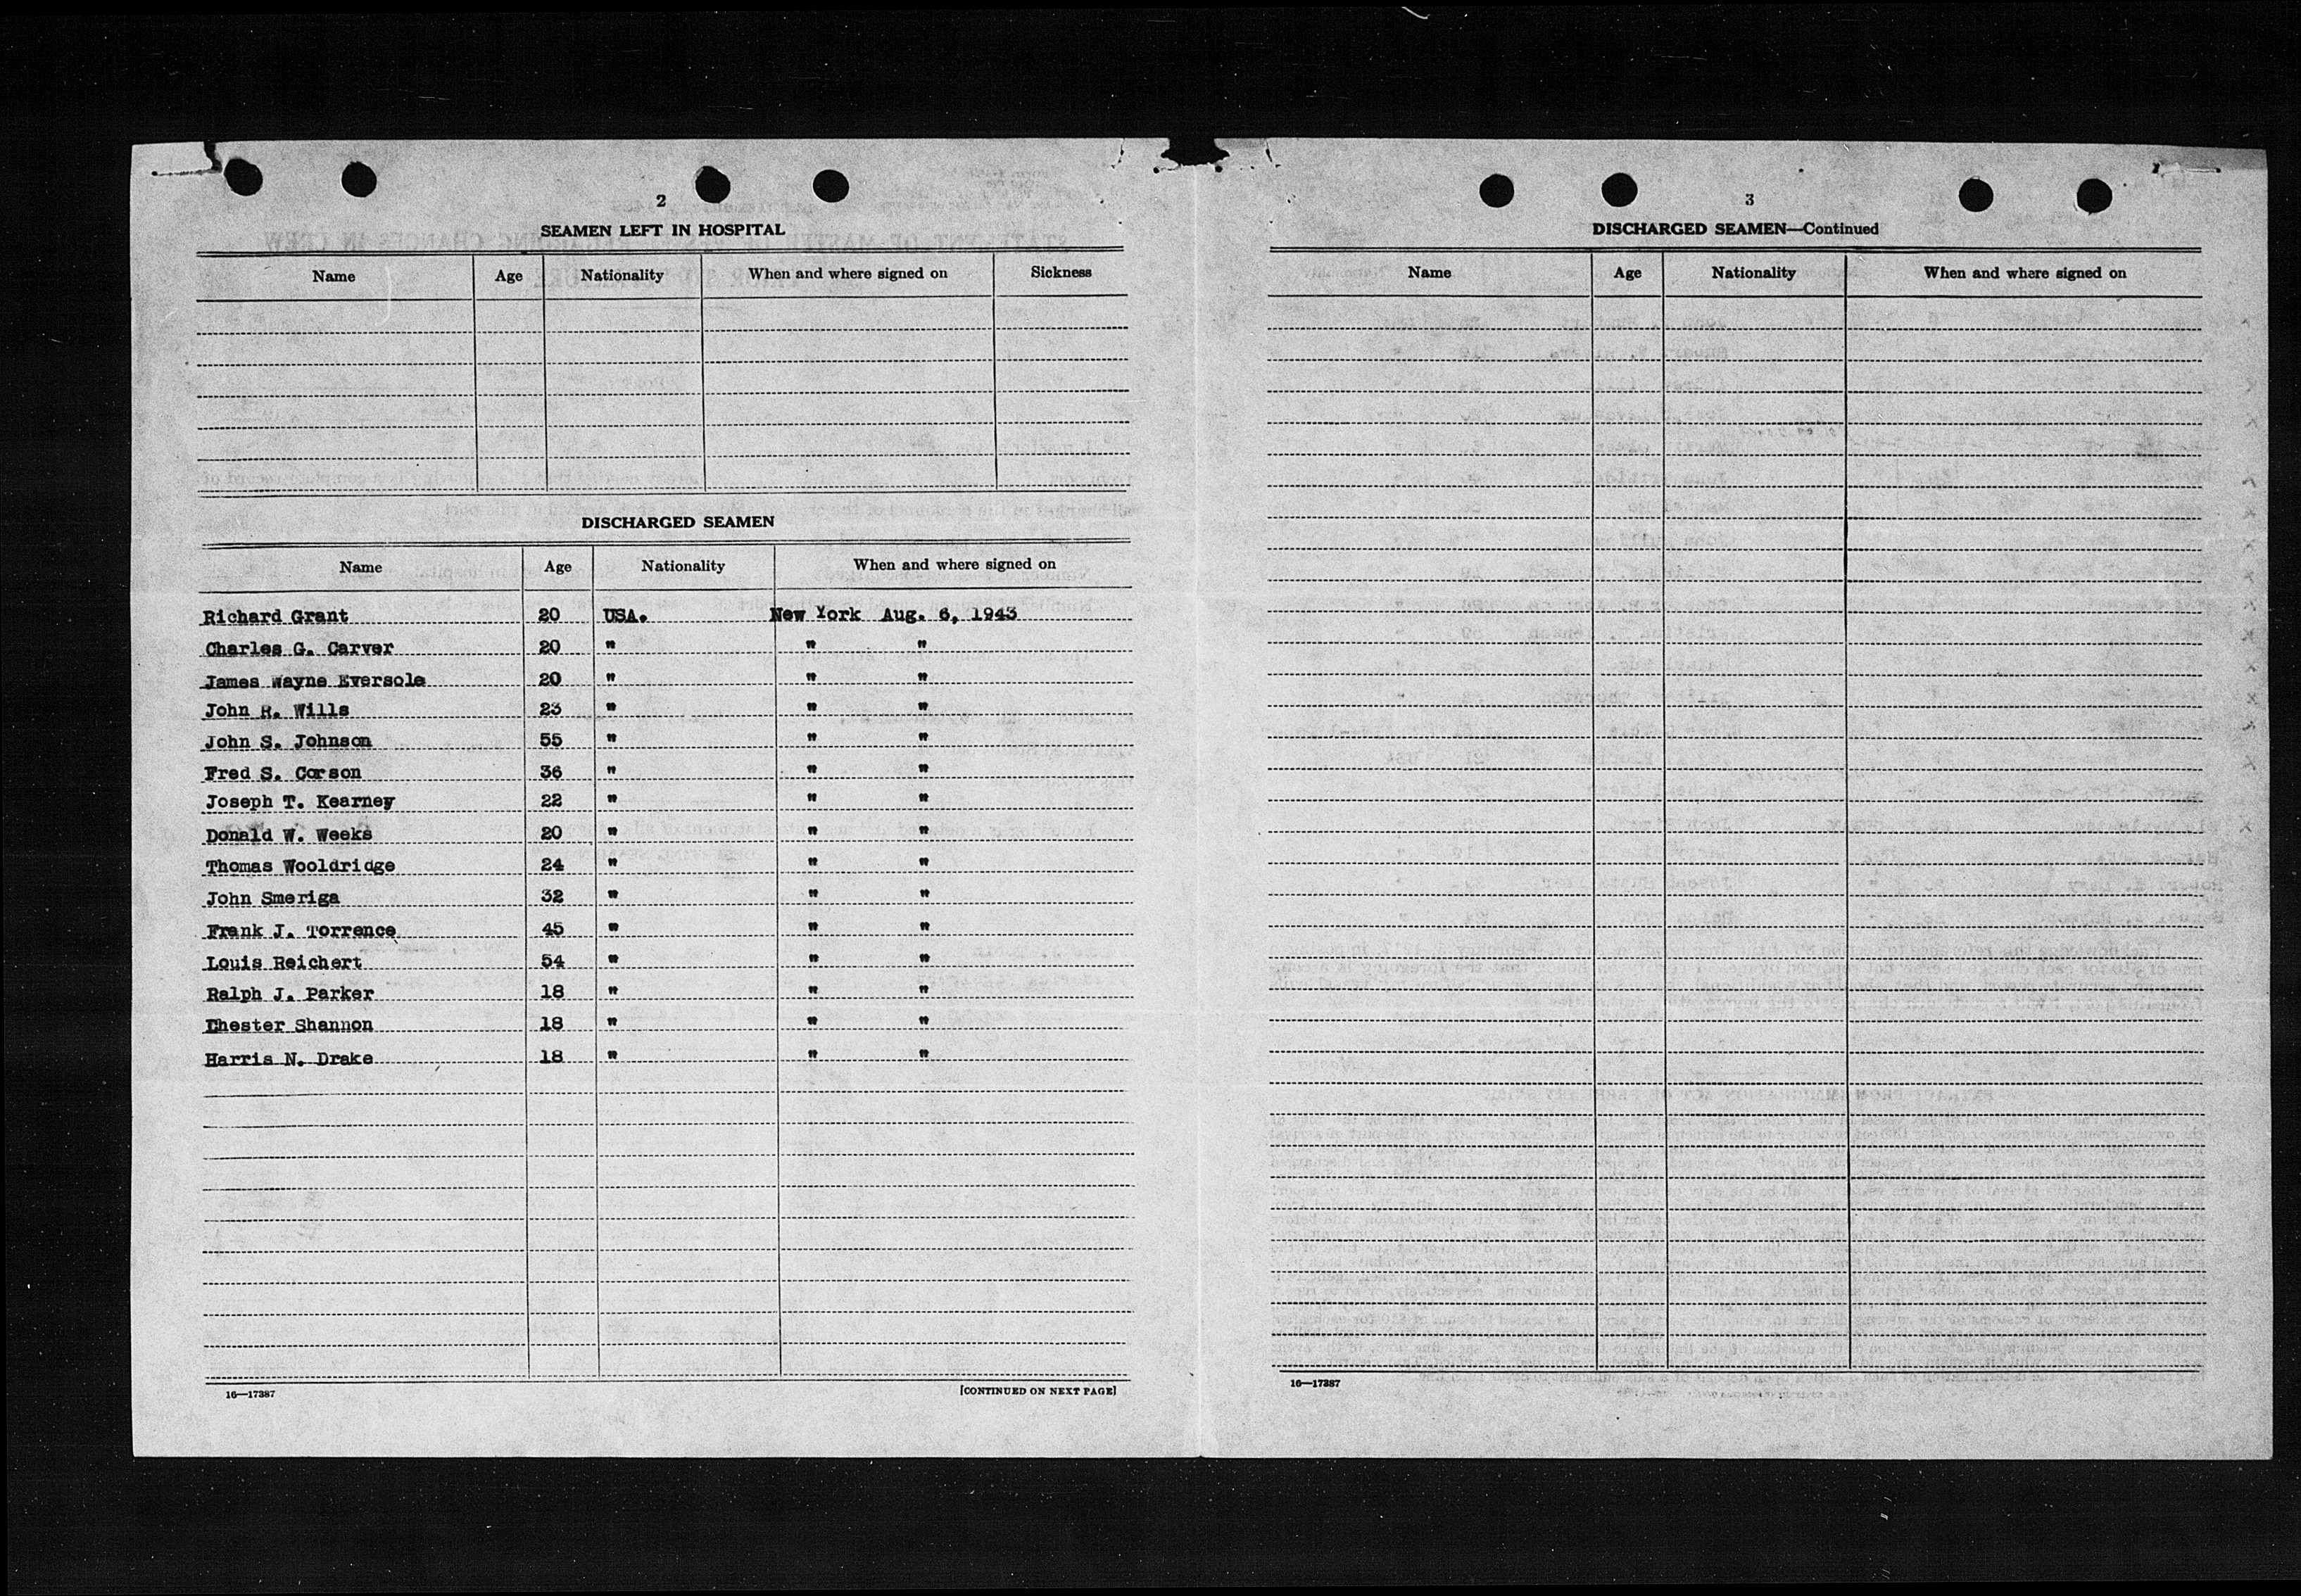 2
SEAMEN LEFT IN HOSPITAL
Name Age Nationality When and where signed on Sickness
DISCHARGED SEAMEN
Name Age Nationality When and where signed on
Richard Grant 20 USA. New York Aug. 6, 1943
Charles G. Carver 20 " " "
James Wayne Eversole 20 " " "
John R. Wills 23 " " "
John S. Johnson 55 " " "
Fred S. Corson 36 " " "
Joseph T. Kearney 22 " " "
Donald W. Weeks 20 " " "
Thomas Wooldridge 24 " " "
John Smeriga 32 " " "
Frank J. Torrence 45 " " "
Louis Reichert 54 " " "
Ralph J. Parker 18 " " "
Chester Shannon 18 " " "
Harris N. Drake 18 " " "
16—17387 [CONTINUED ON NEXT PAGE]
3
DISCHARGED SEAMEN—Continued
Name Age Nationality When and where signed on
16—17387